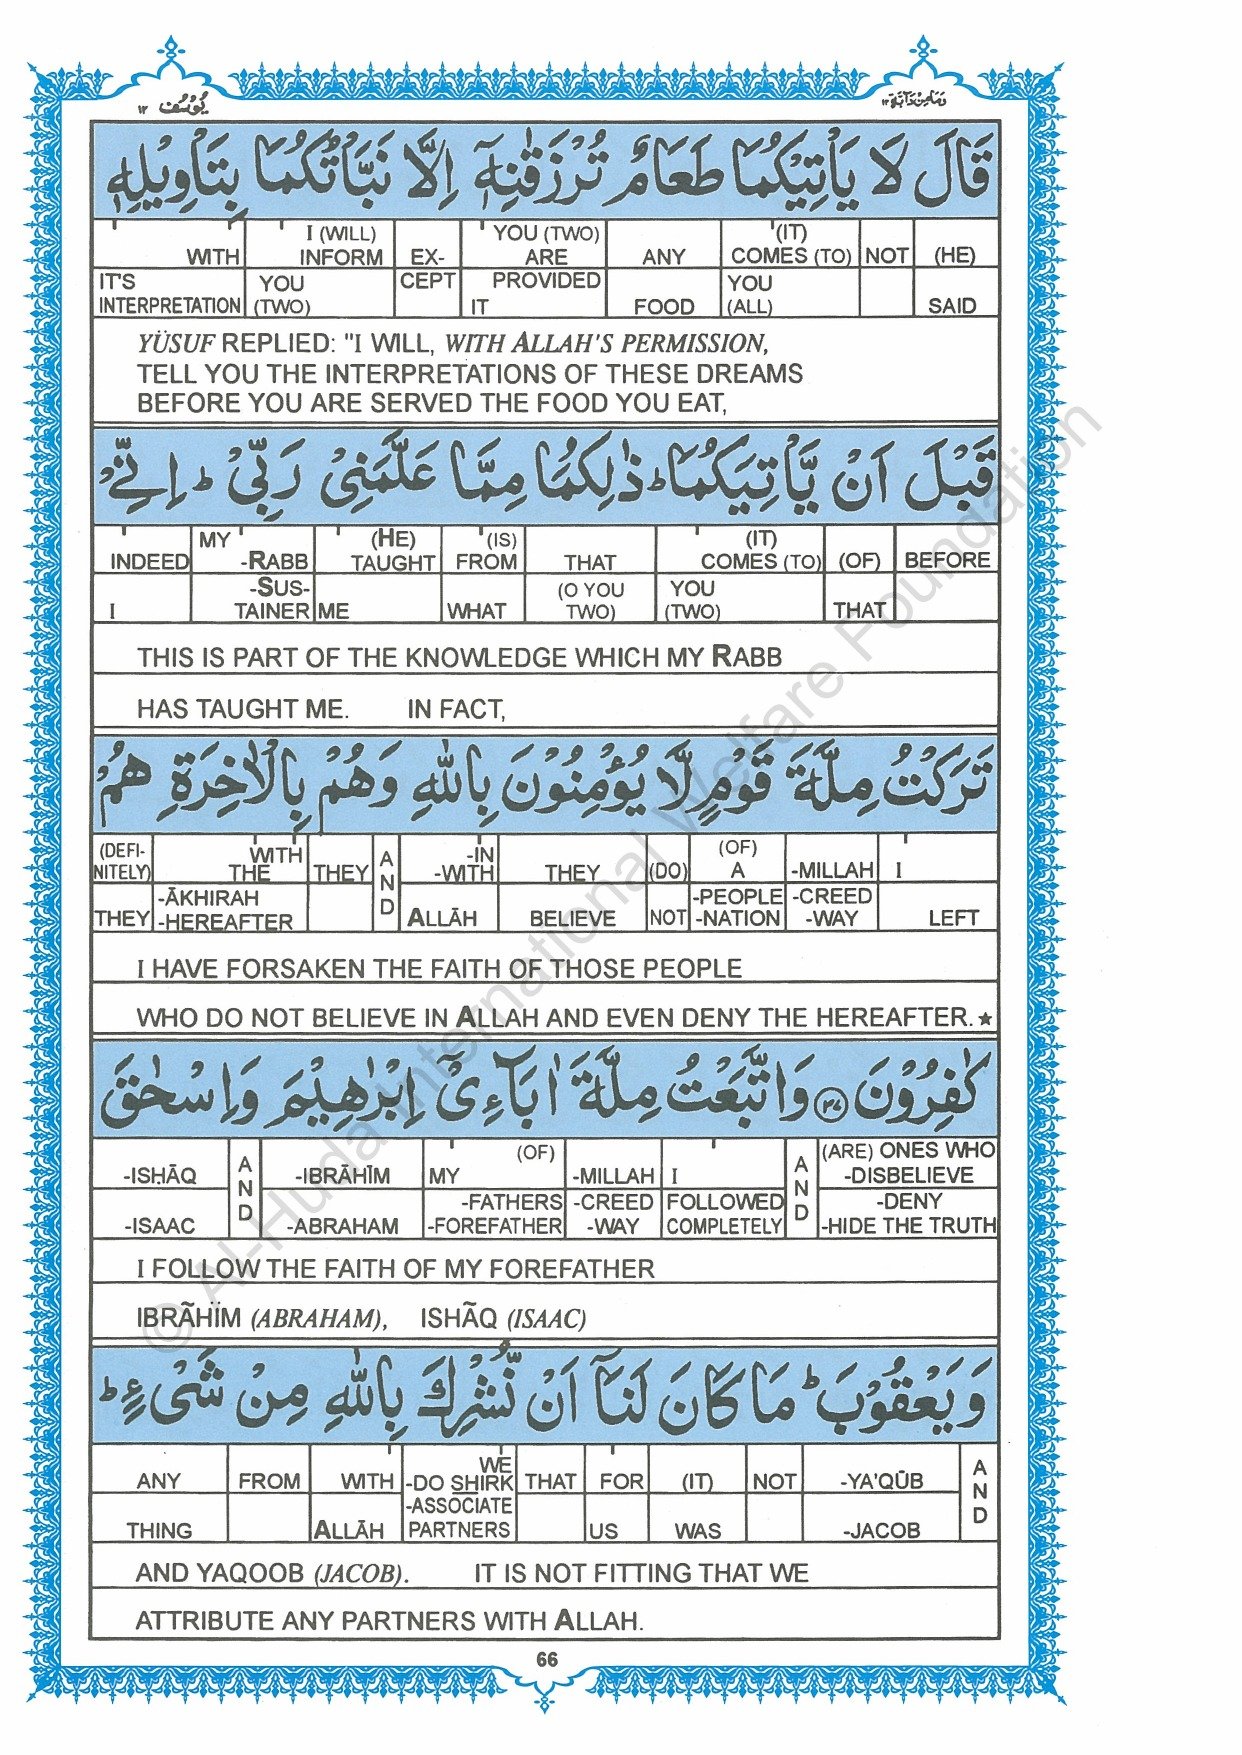 وَمَا مِنْ دَآبَّةٍ ١٢
يُوْسُف ١٢
قَالَ لَا يَاْتِيْكُمَا طَعَامٌ تُرْزَقٰنِهٖۤ اِلَّا نَبَّاْتُكُمَا بِتَاْوِيْلِهٖ
WITH I (WILL) INFORM EX- YOU (TWO) ARE ANY (IT) COMES (TO) NOT (HE)
IT'S INTERPRETATION YOU (TWO) CEPT PROVIDED IT FOOD YOU (ALL) SAID
YÜSUF REPLIED: "I WILL, WITH ALLAH'S PERMISSION,
TELL YOU THE INTERPRETATIONS OF THESE DREAMS
BEFORE YOU ARE SERVED THE FOOD YOU EAT,
قَبْلَ اَنْ يَّاْتِيَكُمَا ؕ ذٰلِكُمَا مِمَّا عَلَّمَنِيْ رَبِّيْ ؕ اِنِّيْ
INDEED MY -RABB (HE) TAUGHT (IS) FROM THAT (IT) COMES (TO) (OF) BEFORE
I -SUS- TAINER ME WHAT (O YOU TWO) YOU (TWO) THAT
THIS IS PART OF THE KNOWLEDGE WHICH MY RABB
HAS TAUGHT ME. IN FACT,
تَرَكْتُ مِلَّةَ قَوْمٍ لَّا يُؤْمِنُوْنَ بِاللّٰهِ وَهُمْ بِالْاٰخِرَةِ هُمْ
(DEFI- NITELY) WITH THE THEY AND -IN -WITH THEY (DO) (OF) A -MILLAH I
THEY -ĀKHIRAH -HEREAFTER ALLĀH BELIEVE NOT -PEOPLE -NATION -CREED -WAY LEFT
I HAVE FORSAKEN THE FAITH OF THOSE PEOPLE
WHO DO NOT BELIEVE IN ALLAH AND EVEN DENY THE HEREAFTER. ★
كٰفِرُوْنَ ۝٣٧ وَاتَّبَعْتُ مِلَّةَ اٰبَآءِيْۤ اِبْرٰهِيْمَ وَاِسْحٰقَ
-ISḤĀQ AND -IBRĀHĪM MY (OF) -MILLAH I AND (ARE) ONES WHO -DISBELIEVE
-ISAAC -ABRAHAM -FATHERS -FOREFATHER -CREED -WAY FOLLOWED COMPLETELY -DENY -HIDE THE TRUTH
I FOLLOW THE FAITH OF MY FOREFATHER
IBRÃHÏM (ABRAHAM), ISHÃQ (ISAAC)
وَيَعْقُوْبَ ؕ مَا كَانَ لَنَاۤ اَنْ نُّشْرِكَ بِاللّٰهِ مِنْ شَيْءٍ ؕ
ANY FROM WITH WE -DO SHIRK THAT FOR (IT) NOT -YA'QŪB AND
THING ALLĀH -ASSOCIATE PARTNERS US WAS -JACOB
AND YAQOOB (JACOB). IT IS NOT FITTING THAT WE
ATTRIBUTE ANY PARTNERS WITH ALLAH.
66
© Al-Huda International Welfare Foundation